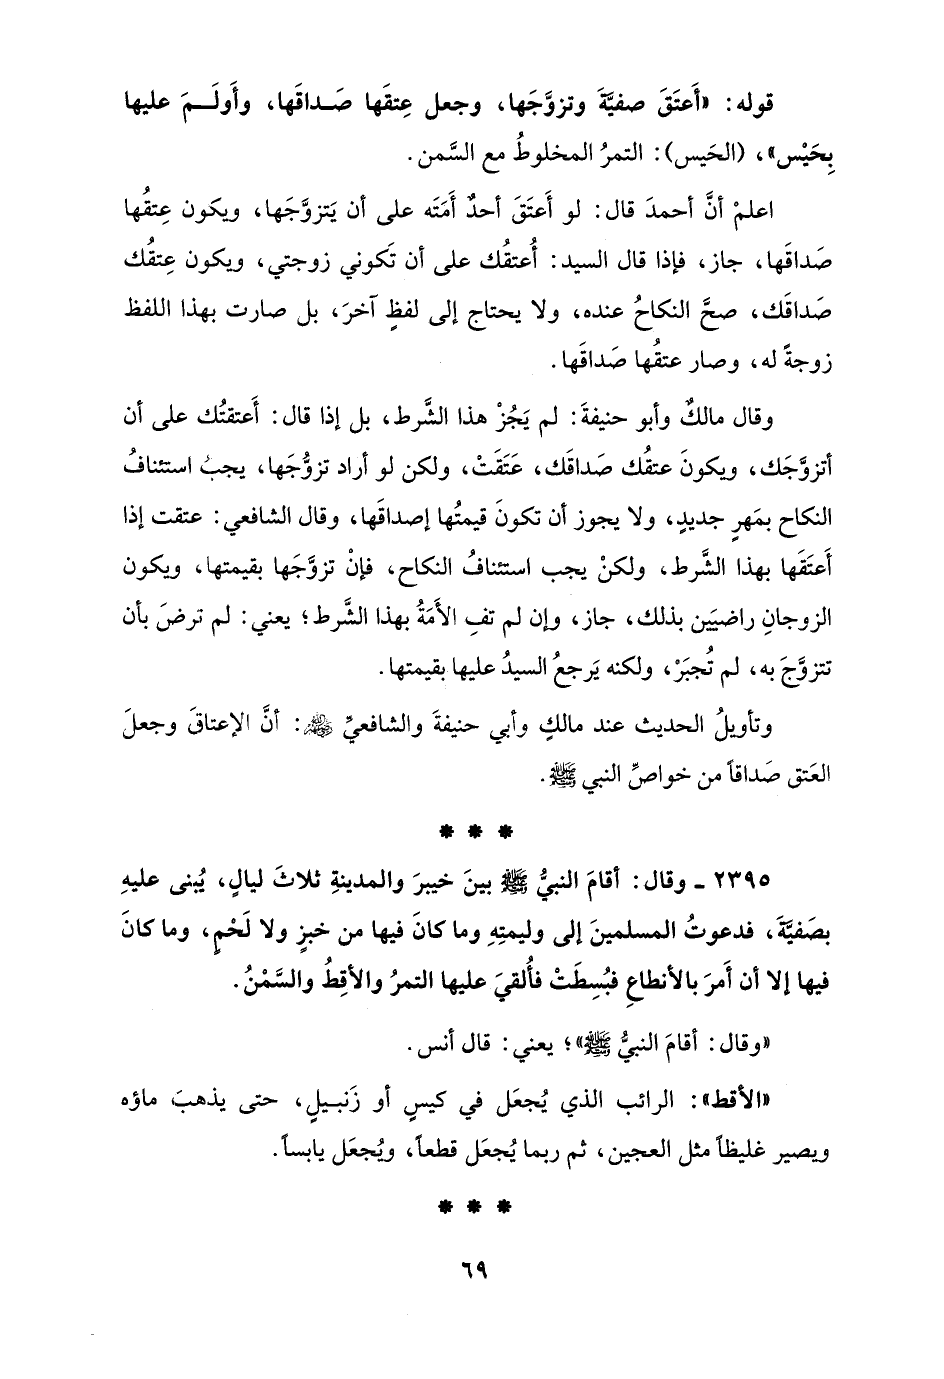 قوله: «أَعتَقَ صفيَّةَ وتزوَّجَها، وجعل عِتقَها صَـداقَها، وأَولَـمَ عليها
بِحَيْس»، (الحَيس): التمرُ المخلوطُ مع السَّمن.
اعلمْ أنَّ أحمدَ قال: لو أَعتَقَ أحدٌ أَمَتَه على أن يَتزوَّجَها، ويكون عِتقُها
صَداقَها، جاز، فإذا قال السيد: أُعتقُك على أن تَكوني زوجتي، ويكون عِتقُك
صَداقَك، صحَّ النكاحُ عنده، ولا يحتاج إلى لفظٍ آخرَ، بل صارت بهذا اللفظ
زوجةً له، وصار عتقُها صَداقَها.
وقال مالكٌ وأبو حنيفةَ: لم يَجُزْ هذا الشَّرط، بل إذا قال: أَعتقتُك على أن
أتزوَّجَك، ويكونَ عتقُك صَداقَك، عَتَقَتْ، ولكن لو أراد تزوُّجَها، يجبُ استئنافُ
النكاح بمَهرٍ جديدٍ، ولا يجوز أن تكونَ قيمتُها إصداقَها، وقال الشافعي: عتقت إذا
أَعتَقَها بهذا الشَّرط، ولكنْ يجب استئنافُ النكاح، فإنْ تزوَّجَها بقيمتها، ويكون
الزوجانِ راضيَين بذلك، جاز، وإن لم تفِ الأَمَةُ بهذا الشَّرط؛ يعني: لم ترضَ بأن
تتزوَّجَ به، لم تُجبَرْ، ولكنه يَرجعُ السيدُ عليها بقيمتها.
وتأويلُ الحديث عند مالكٍ وأبي حنيفةَ والشافعيِّ ﵃: أنَّ الإعتاقَ وجعلَ
العَتق صَداقاً من خواصِّ النبي ﷺ.
* * *
٢٣٩٥ ـ وقال: أقامَ النبيُّ ﷺ بينَ خيبرَ والمدينةِ ثلاثَ ليالٍ، يُبنى عليهِ
بصَفيَّةَ، فدعوتُ المسلمينَ إلى وليمتِهِ وما كانَ فيها من خبزٍ ولا لَحْمٍ، وما كانَ
فيها إلا أن أَمرَ بالأنطاعِ فبُسِطَتْ فأُلقيَ عليها التمرُ والأقِطُ والسَّمْنُ.
«وقال: أقامَ النبيُّ ﷺ»؛ يعني: قال أنس.
«الأقط»: الرائب الذي يُجعَل في كيسٍ أو زَنبـيلٍ، حتى يذهبَ ماؤه
ويصير غليظاً مثل العجين، ثم ربما يُجعَل قطعاً، ويُجعَل يابساً.
* * *
٦٩